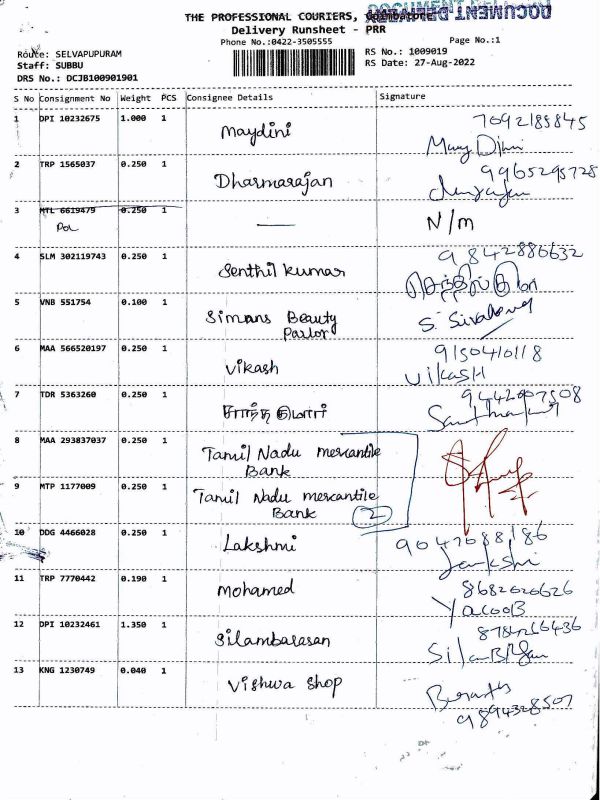 DOCUMENT DELIVERY
THE PROFESSIONAL COURIERS, Coimbatore
Delivery Runsheet - PRR
Phone No.:0422-3505555 Page No.:1
Route: SELVAPUPURAM RS No.: 1009019
Staff: SUBBU RS Date: 27-Aug-2022
DRS No.: DCJB100901901
S No Consignment No Weight PCS Consignee Details Signature
1 DPI 10232675 1.000 1 Maydini 7092185845
2 TRP 1565037 0.250 1 Dharmarajan 9965295728
3 MTL 6619479 0.250 1 — N/m
4 SLM 302119743 0.250 1 Senthil kumar 9842880632
5 VNB 551754 0.100 1 Simans Beauty
Parlor
6 MAA 566520197 0.250 1 Vikash 9150410118
Vikash
7 TDR 5363260 0.250 1
8 MAA 293837037 0.250 1 Tamil Nadu mercantile
Bank
9 MTP 1177009 0.250 1 Tamil Nadu mercantile
Bank 2
10 DDG 4466028 0.250 1 Lakshmi 9047088186
11 TRP 7770442 0.190 1 Mohamed 8682020626
YacooB
12 DPI 10232461 1.350 1 Silambarasan 8784266436
13 KNG 1230749 0.040 1 Vishwa Shop
9894328507